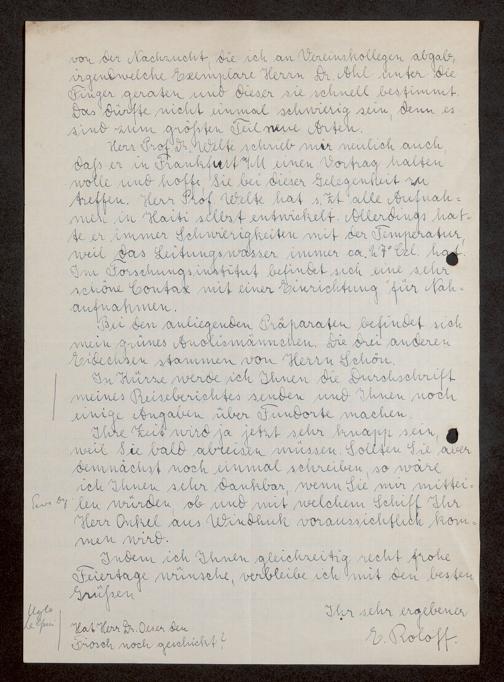 von der Nachzucht, die ich an Vereinskollegen abgab,
irgendwelche Exemplare Herrn Dr. Ahl unter die
Finger geraten und dieser sie schnell bestimmt.
Das dürfte nicht einmal schwierig sein, denn es
sind zum größten Teil neue Arten.
Herr Prof. Dr. Welte schrieb mir neulich auch,
daß er in Frankfurt/M einen Vortrag halten
wolle und hoffe, Sie bei dieser Gelegenheit zu
treffen. Herr Prof. Welte hat s. Zt. alle Aufnah=
men in Haiti selbst entwickelt. Allerdings hat=
te er immer Schwierigkeiten mit der Temperatur,
weil das Leitungswasser immer ca. 27° Cel. hat.
Im Forschungsinstitut befindet sich eine sehr
schöne Contax mit einer Einrichtung für Nah=
aufnahmen.
Bei den anliegenden Präparaten befindet sich
mein grünes Anolismännchen. Die drei anderen
Eidechsen stammen von Herrn Schön.
In Kürze werde ich Ihnen die Durchschrift
meines Reiseberichtes senden und Ihnen noch
einige Angaben über Fundorte machen.
Ihre Zeit wird ja jetzt sehr knapp sein,
weil Sie bald abreisen müssen. Sollten Sie aber
demnächst noch einmal schreiben, so wäre
ich Ihnen sehr dankbar, wenn Sie mir mittei=
len würden, ob und mit welchem Schiff Ihr
Herr Onkel aus Windhuk voraussichtlich kom=
men wird.
Indem ich Ihnen gleichzeitig recht frohe
Feiertage wünsche, verbleibe ich mit den besten
Grüßen
Ihr sehr ergebener
E. Roloff.
Hat Herr Dr. den
Frosch noch geschickt?